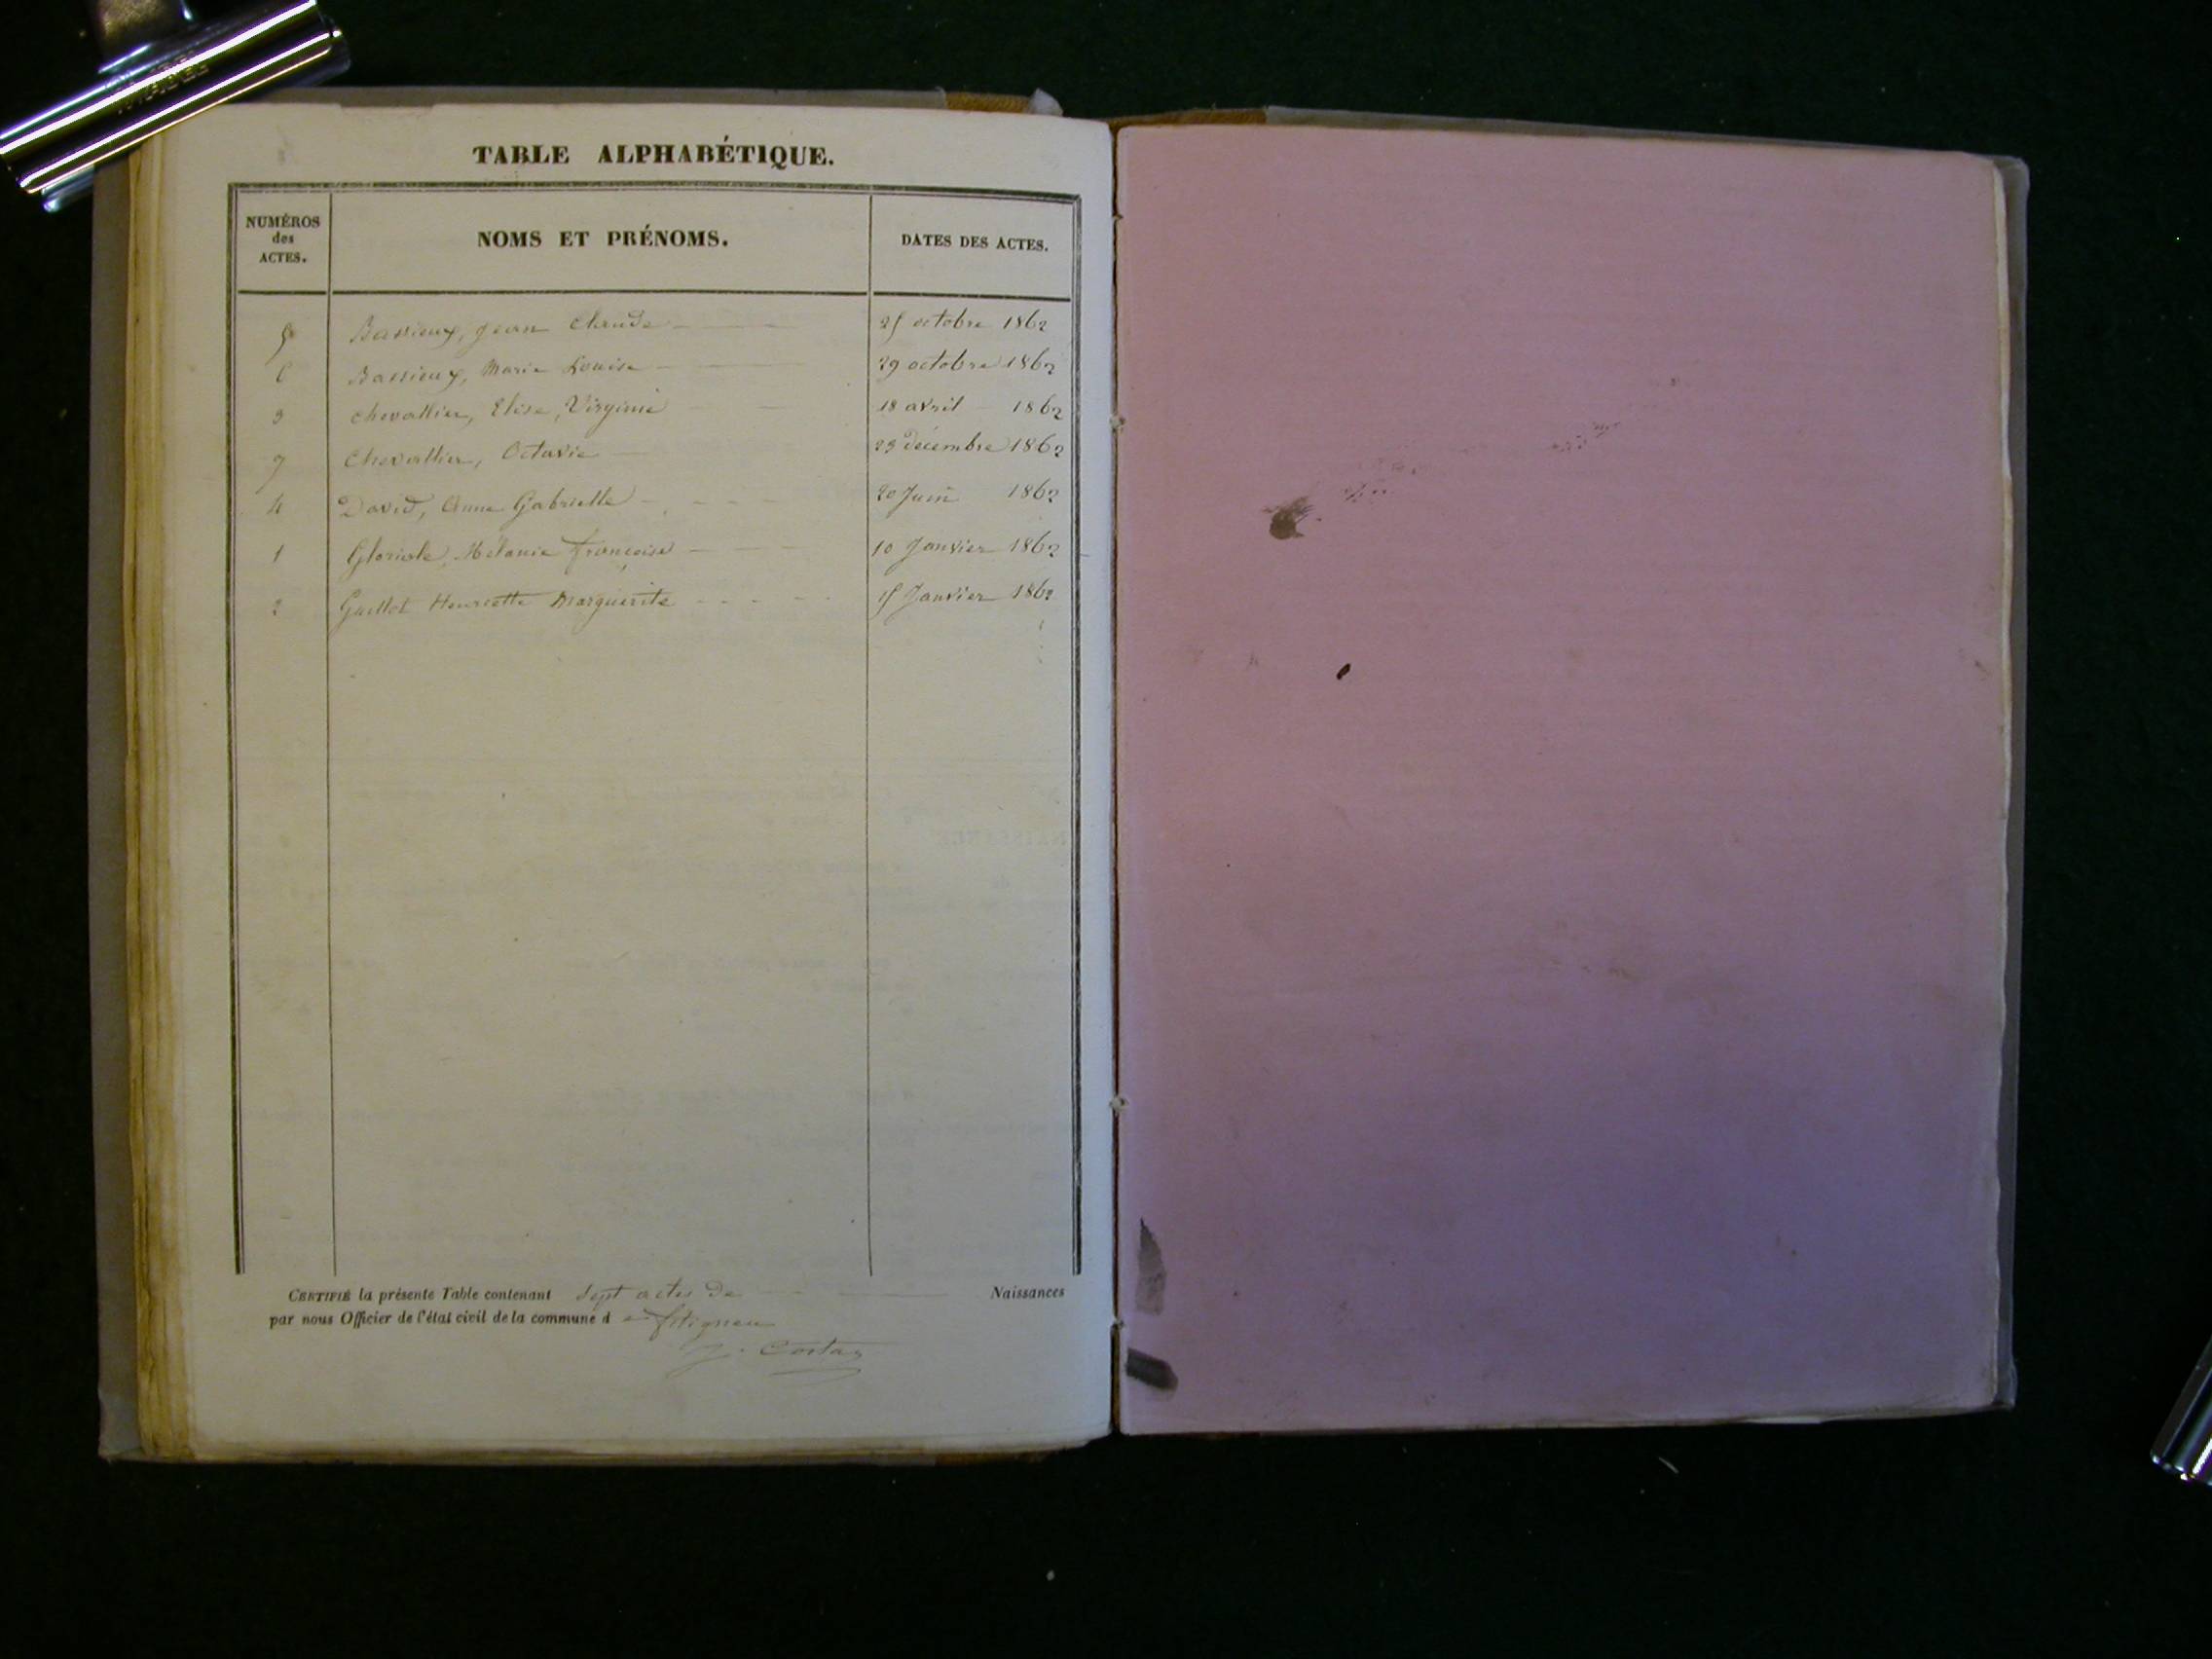 TABLE ALPHABÉTIQUE.
NUMÉROS des ACTES. NOMS ET PRÉNOMS. DATES DES ACTES.
5 Bassieux, Jean Claude 25 octobre 1862
6 Bassieux, Marie Louise 29 octobre 1862
3 Chevallier, Elise, Virginie 18 avril 1862
7 Chevallier, Octavie décembre 1862
4 David, Anne Gabrielle 20 Juin 1862
1 Mélanie françoise 10 Janvier 1862
2 Guillot Henriette Marguerite 15 Janvier 1862
CERTIFIÉ la présente Table contenant Sept actes de Naissances
par nous Officier de l'état civil de la commune d
J. Costaz